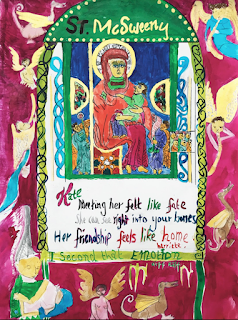 Sr. McSweeny
Kate
Meeting her felt like fate
She can see right into your bones
Her friendship feels like home
harriete
I Second that EMOTION